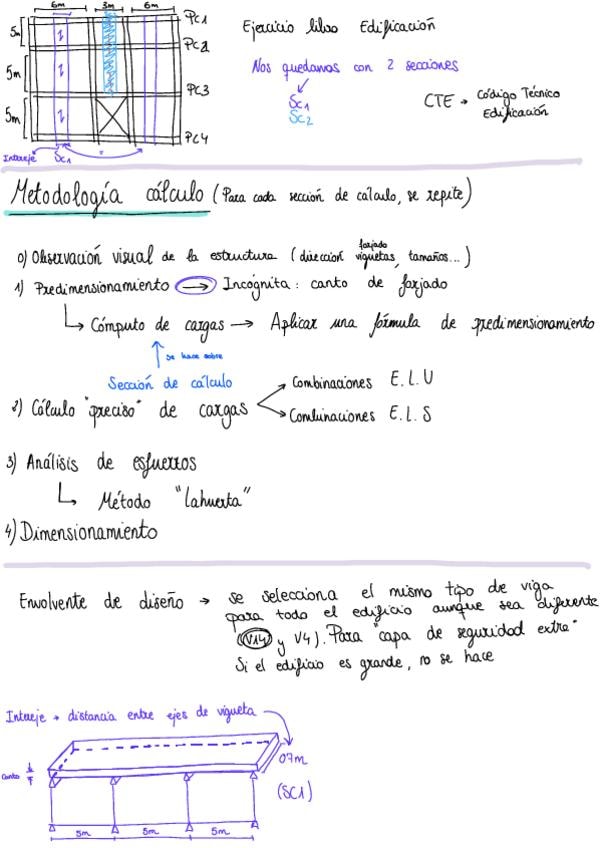 6m 3m 6m
PC1
5m
PC2
5m
PC3
5m
PC4
Intereje Sc1
Ejercicio libro Edificación
Nos quedamos con 2 secciones
Sc1
Sc2
CTE → Código Técnico
Edificación
Metodología cálculo (Para cada sección de cálculo, se repite)
0) Observación visual de la estructura (dirección viguetas, tamaños...)
forjado
1) Predimensionamiento → Incógnita: canto de forjado
↳ Cómputo de cargas → Aplicar una fórmula de predimensionamiento
se hace sobre
Sección de cálculo
2) Cálculo "preciso" de cargas
Combinaciones E.L.U
Combinaciones E.L.S
3) Análisis de esfuerzos
↳ Método "Lahuerta"
4) Dimensionamiento
Envolvente de diseño → se selecciona el mismo tipo de viga
para todo el edificio aunque sea diferente
(V14 y V4). Para "capa de seguridad extra"
Si el edificio es grande, no se hace
Intereje → distancia entre ejes de vigueta
Canto
07m
(SC1)
5m 5m 5m